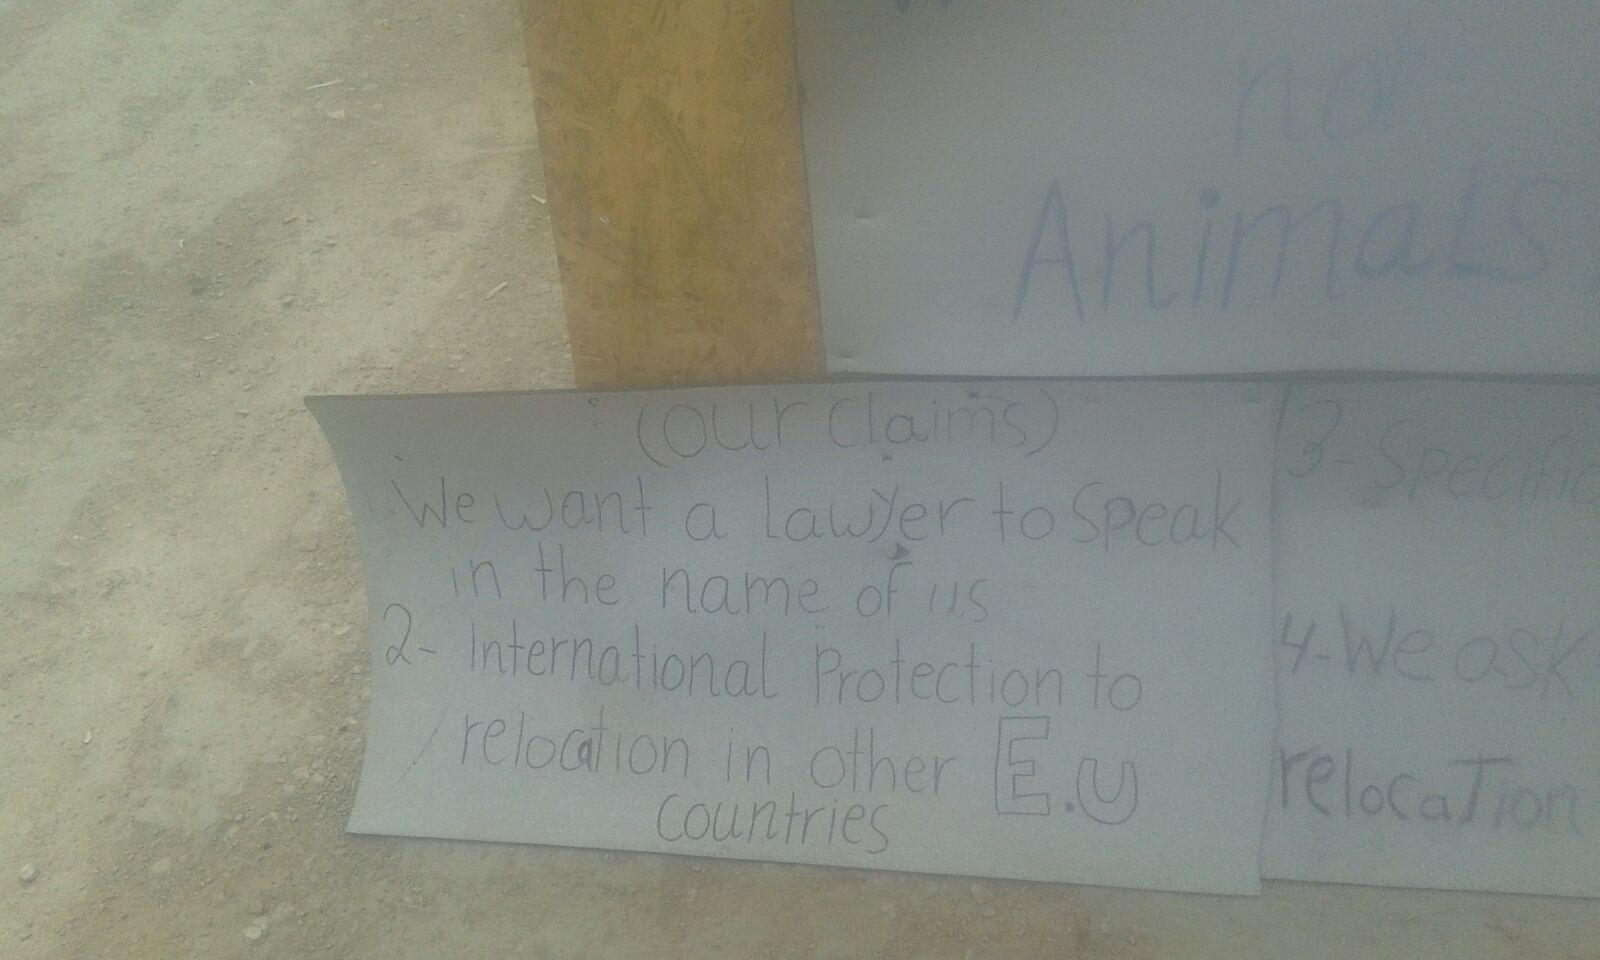 not
Animals
(our claims)
We want a lawyer to speak
in the name of us
2- International Protection to
relocation in other E.U
countries
3- Specific
4- We ask
relocation